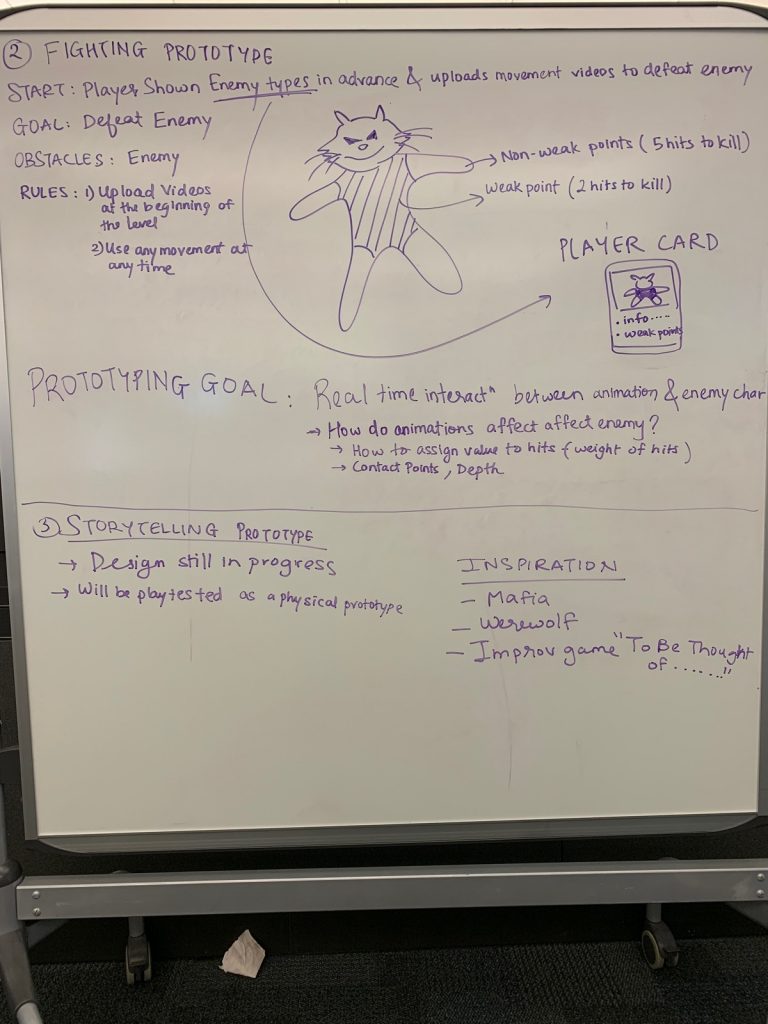 ② FIGHTING PROTOTYPE
START: Player Shown Enemy types in advance & uploads movement videos to defeat enemy
GOAL: Defeat Enemy
OBSTACLES: Enemy
RULES: 1) Upload Videos
at the beginning of
the level
2) Use any movement at
any time
→ Non-weak points (5 hits to kill)
weak point (2 hits to kill)
PLAYER CARD
• info.....
• weak points
PROTOTYPING GOAL: Real time interactⁿ between animation & enemy char
→ How do animations affect affect enemy?
→ How to assign value to hits (weight of hits)
→ Contact Points, Depth
③ STORYTELLING PROTOTYPE
→ Design still in progress
→ Will be playtested as a physical prototype
INSPIRATION
– Mafia
– Werewolf
– Improv game "To Be Thought
of ......."